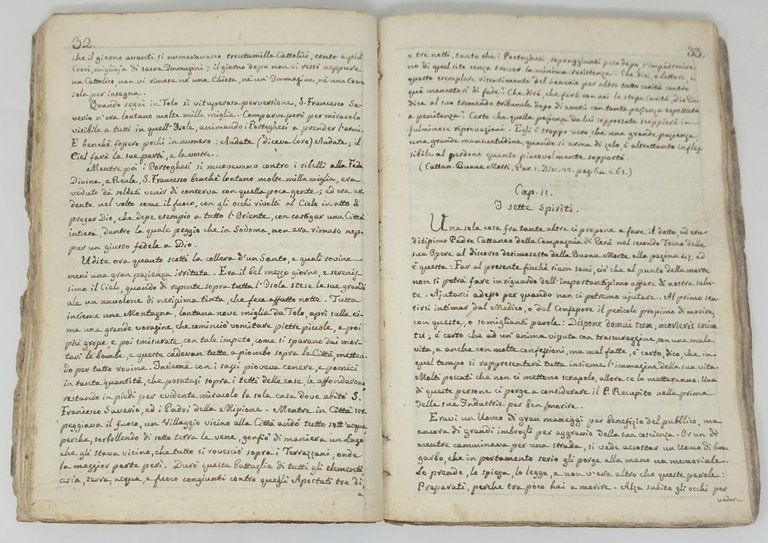 32.
che il giorno avanti si numeravano trentamilla Cattolici, cento e più
Croci, migliaja di Sacre Immagini; il giorno dopo non vi restò neppure
un Cattolico, non vi rimase nè una Chiesa, nè un' Immagine, nè una Croce
sola per insegna.
Quando seguì in Tolo sì vituperosa perversione, S. Francesco Sa-
verio n' era lontano molte mille miglia. Comparve però per miracolo
visibile a tutti in quell' Isola, animando i Portoghesi a prender l' armi.
E benchè fossero pochi in numero: Andate (diceva loro) Andate, il
Ciel farà le sue parti, e le vostre.
Mentre poi i Portoghesi si muovevano contro i ribelli alla Fede
Divina, e Reale, S. Francesco benchè lontano molte mille miglia, era
veduto da soldati venir di conserva con quella poca gente; ed era ar-
dente nel volto come il fuoco, con gli occhi rivolti al Cielo in atto di
pregar Dio, che desse esempio a tutto l' Oriente, con castigar una Città
intiera, dentro la quale peggio che in Sodoma, non era rimaso nep-
pur un giusto fedele a Dio.
Udite ora quanto scotti la collera d' un Santo, e quali rovine
meni una gran pazienza irritata. Era il bel mezzo giorno, e serenis-
simo il Cielo, quando di repente sopra tutta l' Isola stese la sue grandi
ale un nuvolone di nerissima tinta, che fece affatto notte. Tutta
insieme una Montagna, lontana nove miglia da Tolo, aprì sulla ci-
ma una grande voragine, che cominciò vomitare pietre piccole, e poi
più grosse e poi smisurate, con tale impeto, come si sparano dai mor-
tari le bombe, e queste cadevan tutte a piombo sopra la Città, metten-
do per tutto rovine. Insieme con i sassi pioveva cenere, e pomici
in tanta quantità, che posatasi sopra i tetti delle case, le affondarono
restando in piedi per evidente miracolo la sola casa dove abitò S.
Francesco Saverio, ed i Padri della Missione. Mentre in Città ser-
peggiava il fuoco, un Villaggio vicino alla Città andò tutto sott' acqua
perchè, sorbillendo di sotto terra le vene, gonfiò di maniera un Lago
che gli stava vicino, che tutto si rovesciò sopra i Terrazzani, onde
la maggior parte perì. Durò questa battaglia di tutti gli elementi
aria, terra, acqua, e fuoco congiunti contro quegli Apostati tre dì
e
33.
e tre notti, tanto che i Portoghesi, sopraggiunti poco dopo, s' impadroniro-
no di quel sito senza trovar la minima resistenza. Che dici, o lettore, a
questo esemplare risentimento del Saverio per altro tutto carità contro
quei mancatori di fede? Che dirà, che farà con noi la stessa Carità, Dio Giu-
dice al suo tremendo tribunale dopo di averci con tanta pazienza aspettato
a penitenza? Certo che quella pazienza da lui sopportata scoppierà in
fulminose riprovazioni. Egli è troppo vero che una grande pazienza,
una grande mansuetudine, quando si arma di zelo è altrettanto infles-
sibile al perdono quanto piacevolmente sopportò.
(Cattan. Buona Mort. Par. 1. Disc. 22. pag. 60. e 61.)
Cap. 11.
I sette Spiriti.
Una sola cosa fra tante altre ci propone a fare, il dotto, ed eru-
ditissimo Padre Cattaneo della Compagnia di Gesù nel secondo Tomo delle
sue Opere al discorso decimosesto della Buona Morte alla pagina 47. ed
è questa: Far al presente finchè siam sani, ciò che al punto della morte
non si potrà fare in riguardo dell' importantissimo affare di nostra salu-
te. Ajutarci adesso per quando non ci potremo ajutare. Al primo sen-
tirsi intimar dal Medico, o dal Confessore il pericolo prossimo di morire,
con queste, o somiglianti parole: Dispone domui tuæ, morieris enim
tu; è certo che ad un' anima vissuta con trascuraggine, con una mala
vita, e anche con molte confessioni, ma mal fatte, è certo, dico, che in
quel tempo si rappresenterà tutta insieme l' immagine della sua vita.
Molti peccati che non ci mettono scrupolo, allora ce lo metteranno. Una
di queste persone ci porge a considerare il P. Recupito nella prima
delle sue Industrie per ben morire.
Eravi un Uomo di gran maneggi per benefizio del pubblico, ma
ancora di grandi imbrogli per aggravio della sua coscienza. Or un dì
mentre camminava per una strada, si vede accostar un Uomo di buon
garbo, che in portamento serio gli porge alla mano un memoriale.
Lo prende, lo spiega, lo legge, e non v' era altro che queste parole:
Preparati, perchè tra poco hai a morire. Alza subito gli occhi per
veder